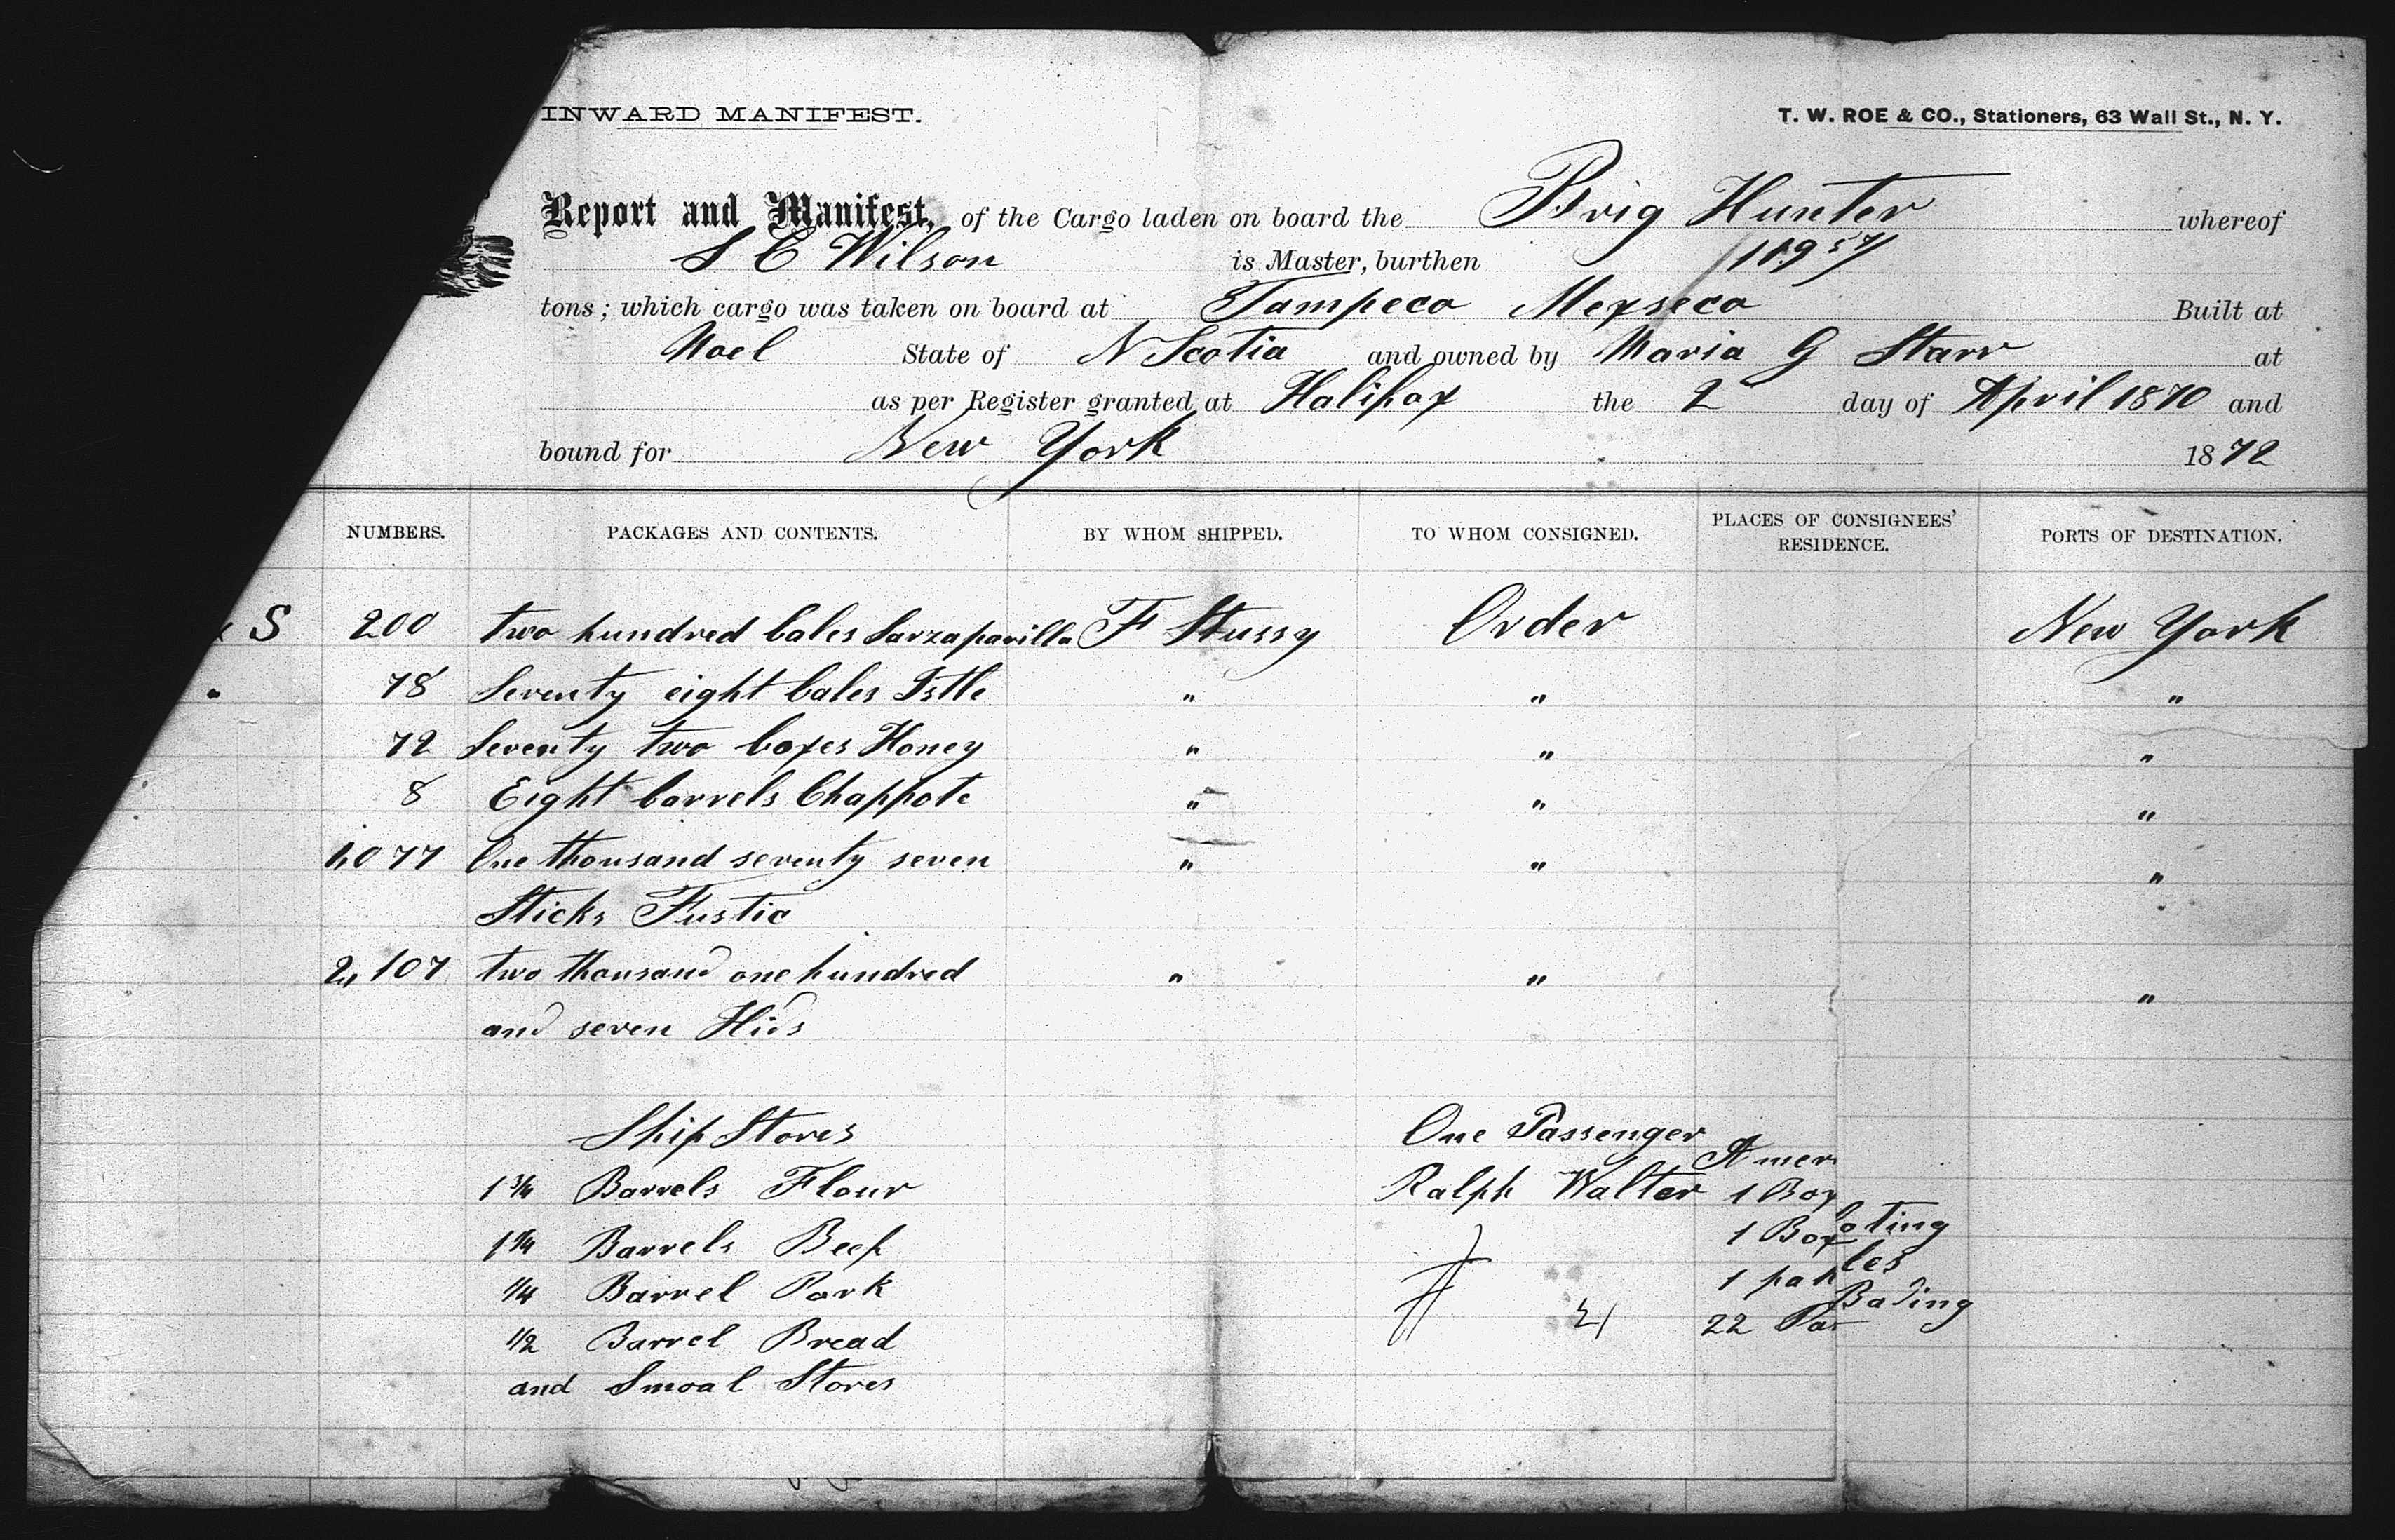 INWARD MANIFEST.
T. W. ROE & CO., Stationers, 63 Wall St., N. Y.
Report and Manifest, of the Cargo laden on board the Brig Hunter whereof
S C Wilson is Master, burthen 109 57/
tons; which cargo was taken on board at Tampeco Mexseco Built at
Noel State of N Scotia and owned by Maria G Starr at
as per Register granted at Halifax the 2 day of April 1870 and
bound for New York 1872
NUMBERS. PACKAGES AND CONTENTS. BY WHOM SHIPPED. TO WHOM CONSIGNED. PLACES OF CONSIGNEES' RESIDENCE. PORTS OF DESTINATION.
S 200 two hundred bales Sarzaparilla F Stussy Order New York
" 78 Seventy eight bales Istle " " "
72 Seventy two boxes Honey " " "
8 Eight barrels Chappote " " "
1,077 One thousand seventy seven " " "
Sticks Fustic
2,107 two thousand one hundred " " "
and seven Hids
Ship Stores One Passenger
1 3/4 Barrels Flour Ralph Walter Amer
1 Box
1 1/4 Barrels Beef 1 Box oting
1/4 Barrel Pork 1 pak les
1/2 Barrel Bread 21 22 Pa Bading
and Smoal Stores